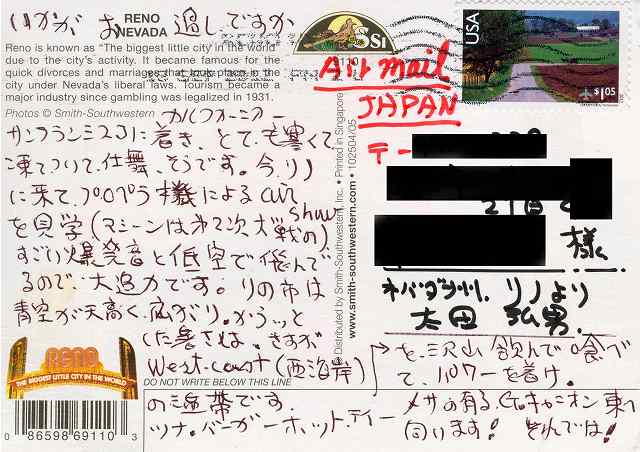 いかが お過しですか
RENO
NEVADA
Reno is known as "The biggest little city in the world"
due to the city's activity. It became famous for the
quick divorces and marriages that took place in the
city under Nevada's liberal laws. Tourism became a
major industry since gambling was legalized in 1931.
Photos © Smith-Southwestern
カルフォーニアー
サンフランシスコに着き、とても寒くて
凍てついて仕舞いそうです。今、リノ
に来て、プロペラ機によるair show
を見学(マシーンは第2次大戦の)
すごい爆発音と低空で飛んで
るので、大迫力です。リノの市は
青空が天高く、広がり。かうっと
した暑さは、さすが
West-coast (西海岸)
の連帯です。
ツナ・バーガー ホット・ティー
を沢山 飲んで 喰べ
て、パワーを着け。
メサの有る、キャニオン 東へ
向います! それでは!
RENO
THE BIGGEST LITTLE CITY IN THE WORLD
DO NOT WRITE BELOW THIS LINE
0 86598 69110 3
SSI
Distributed by Smith-Southwestern, Inc. • Printed in Singapore
www.smith-southwestern.com • 102504/05
Air mail
JAPAN
〒
様
ネバダ州、リノより
太田 弘男.
USA
$1.05